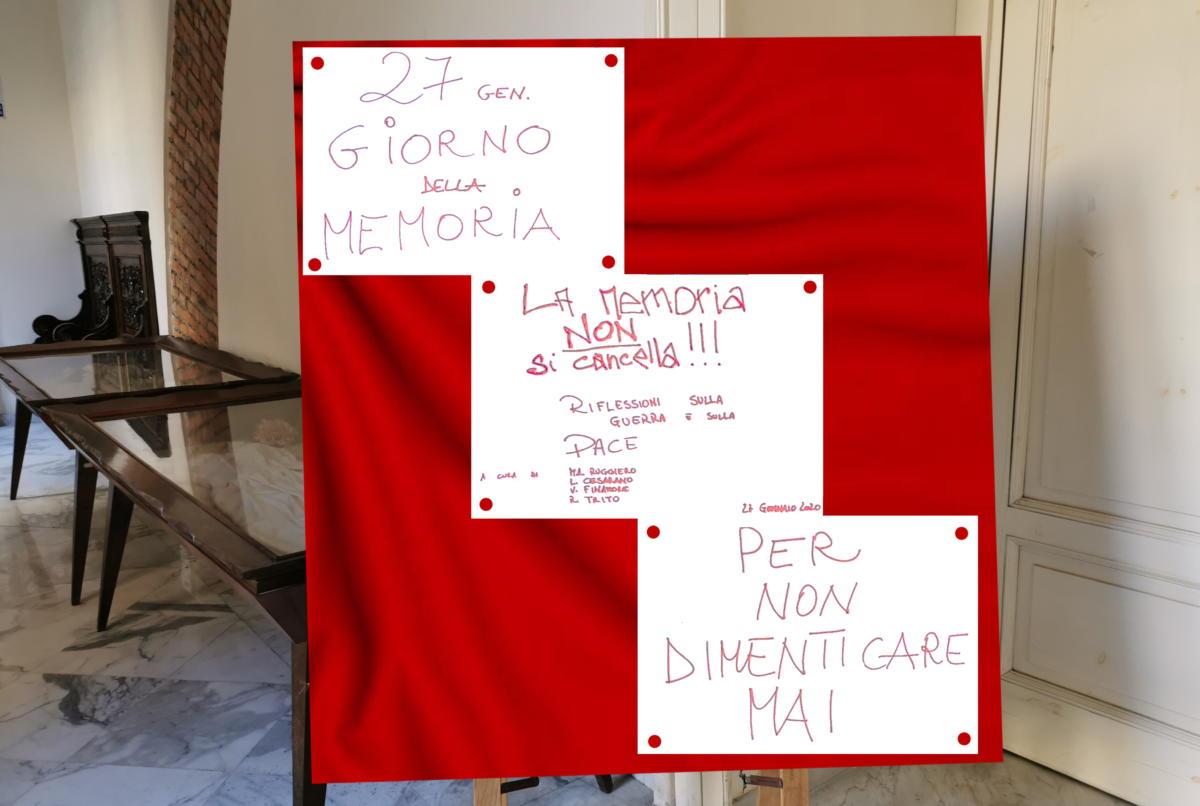 27 GEN.
GiORNO
DELLA
MEMORiA
LA MEMORia
NON
si cancella!!!
RIFLESSIONI SULLA
GUERRA E SULLA
PACE
A CURA DI
M.R. RUGGIERO
L. CESARANO
V. FINAMORE
R. TRITO
27 GENNAIO 2020
PER
NON
DIMENTICARE
MAI